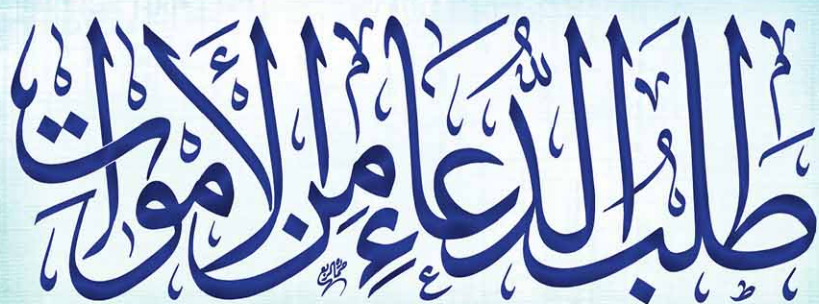 طَلَبُ الدُّعَاءِ مِنَ الأَمْوَاتِ